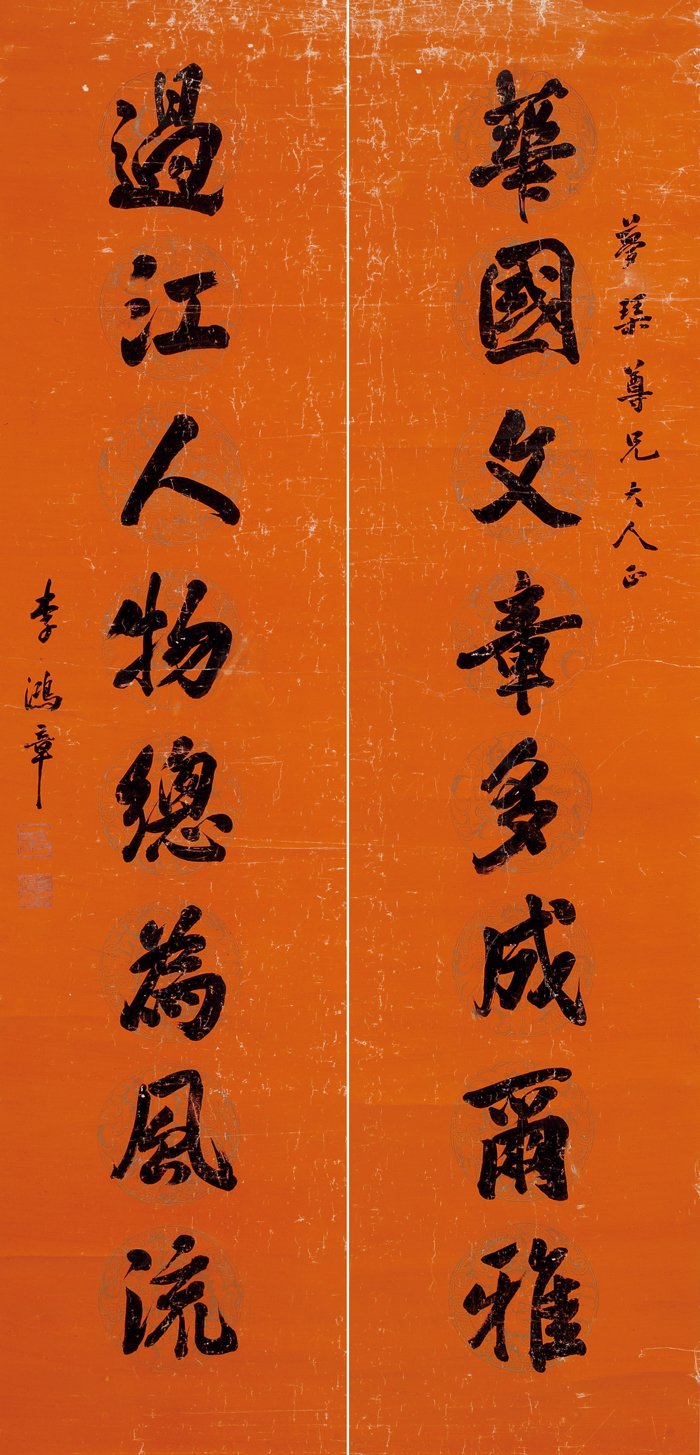 夢琹尊兄大人正
華國文章多成爾雅
過江人物總為風流
李鴻章